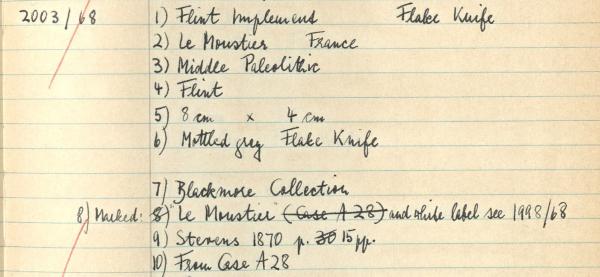 2003/68 1) Flint Implement Flake Knife
2) Le Moustier France
3) Middle Paleolithic
4) Flint
5) 8 cm x 4 cm
6) Mottled grey Flake Knife
7) Blackmore Collection
8) Marked: 8) "Le Moustier" (Case A 28) and white label see 1998/68
9) Stevens 1870 p. 30 15 pp.
10) From Case A28